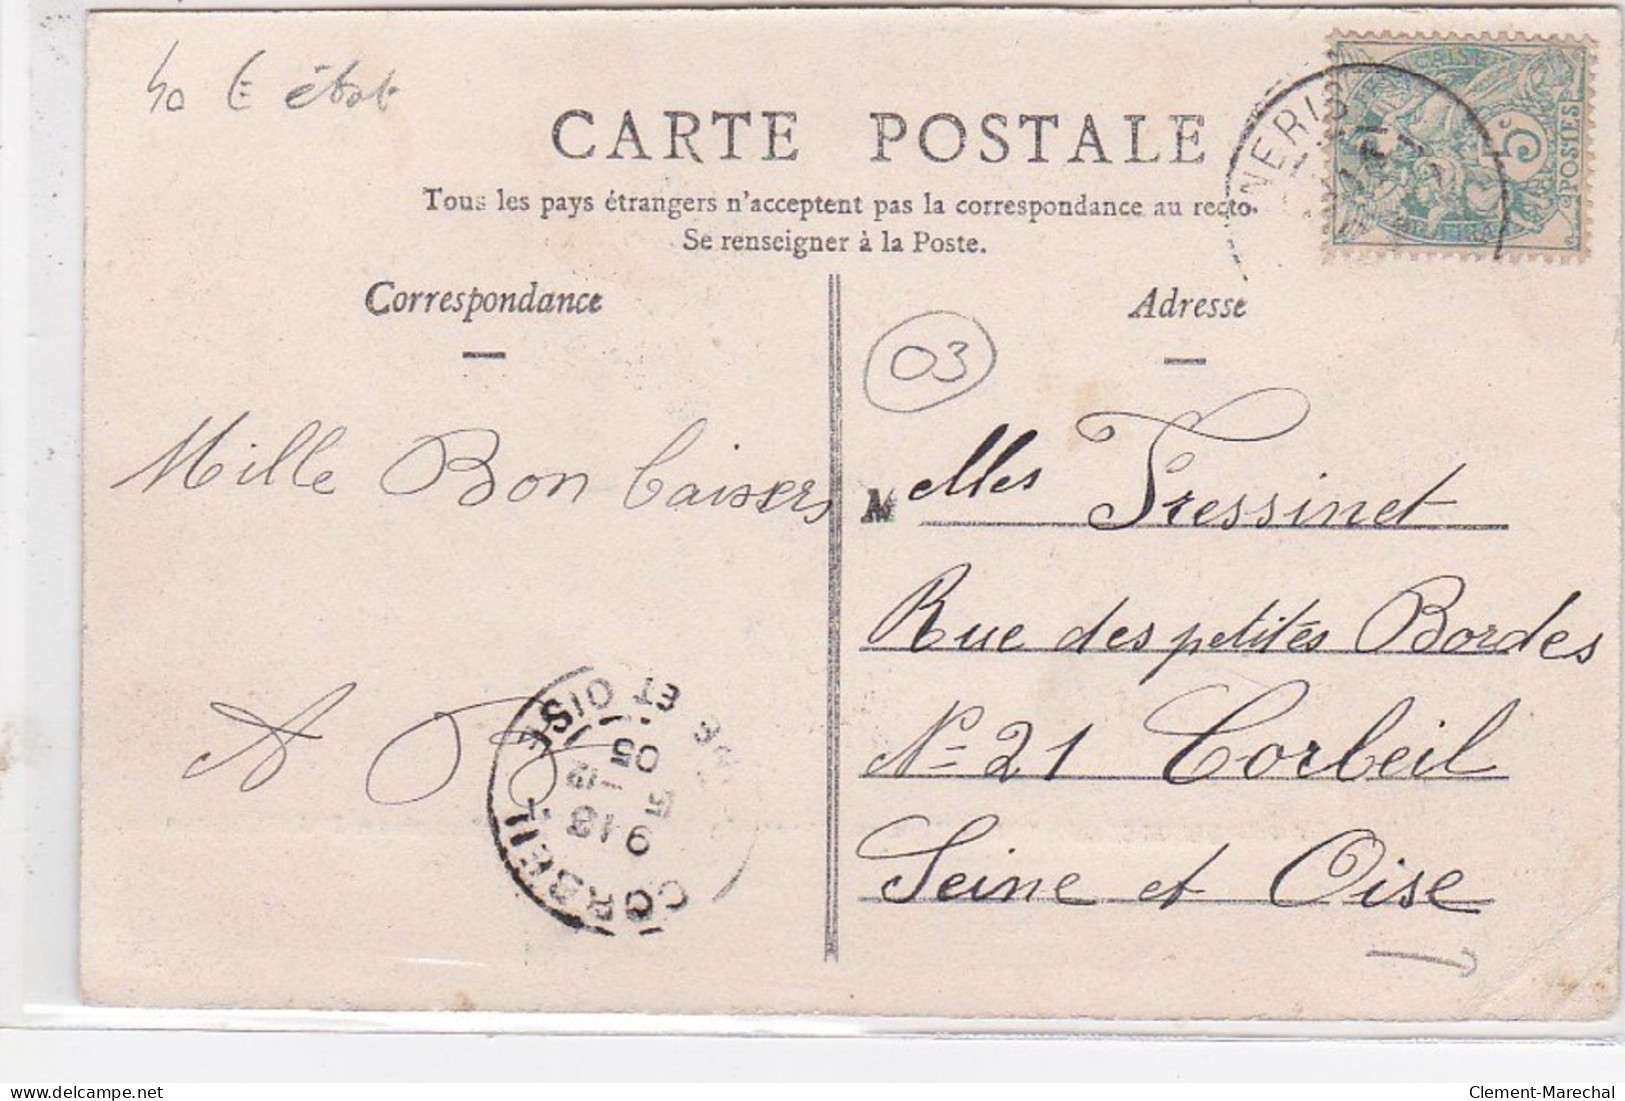 40 € état
CARTE POSTALE
Tous les pays étrangers n'acceptent pas la correspondance au recto.
Se renseigner à la Poste.
NERIS
POSTES
5c
Correspondance
Adresse
03
Mille Bon baisers
A
Melles Fressinet
Rue des petites Bordes
No 21 Corbeil
Seine et Oise
CORBEIL
ET OISE
9 18
5 -12
05
Clement-Marechal